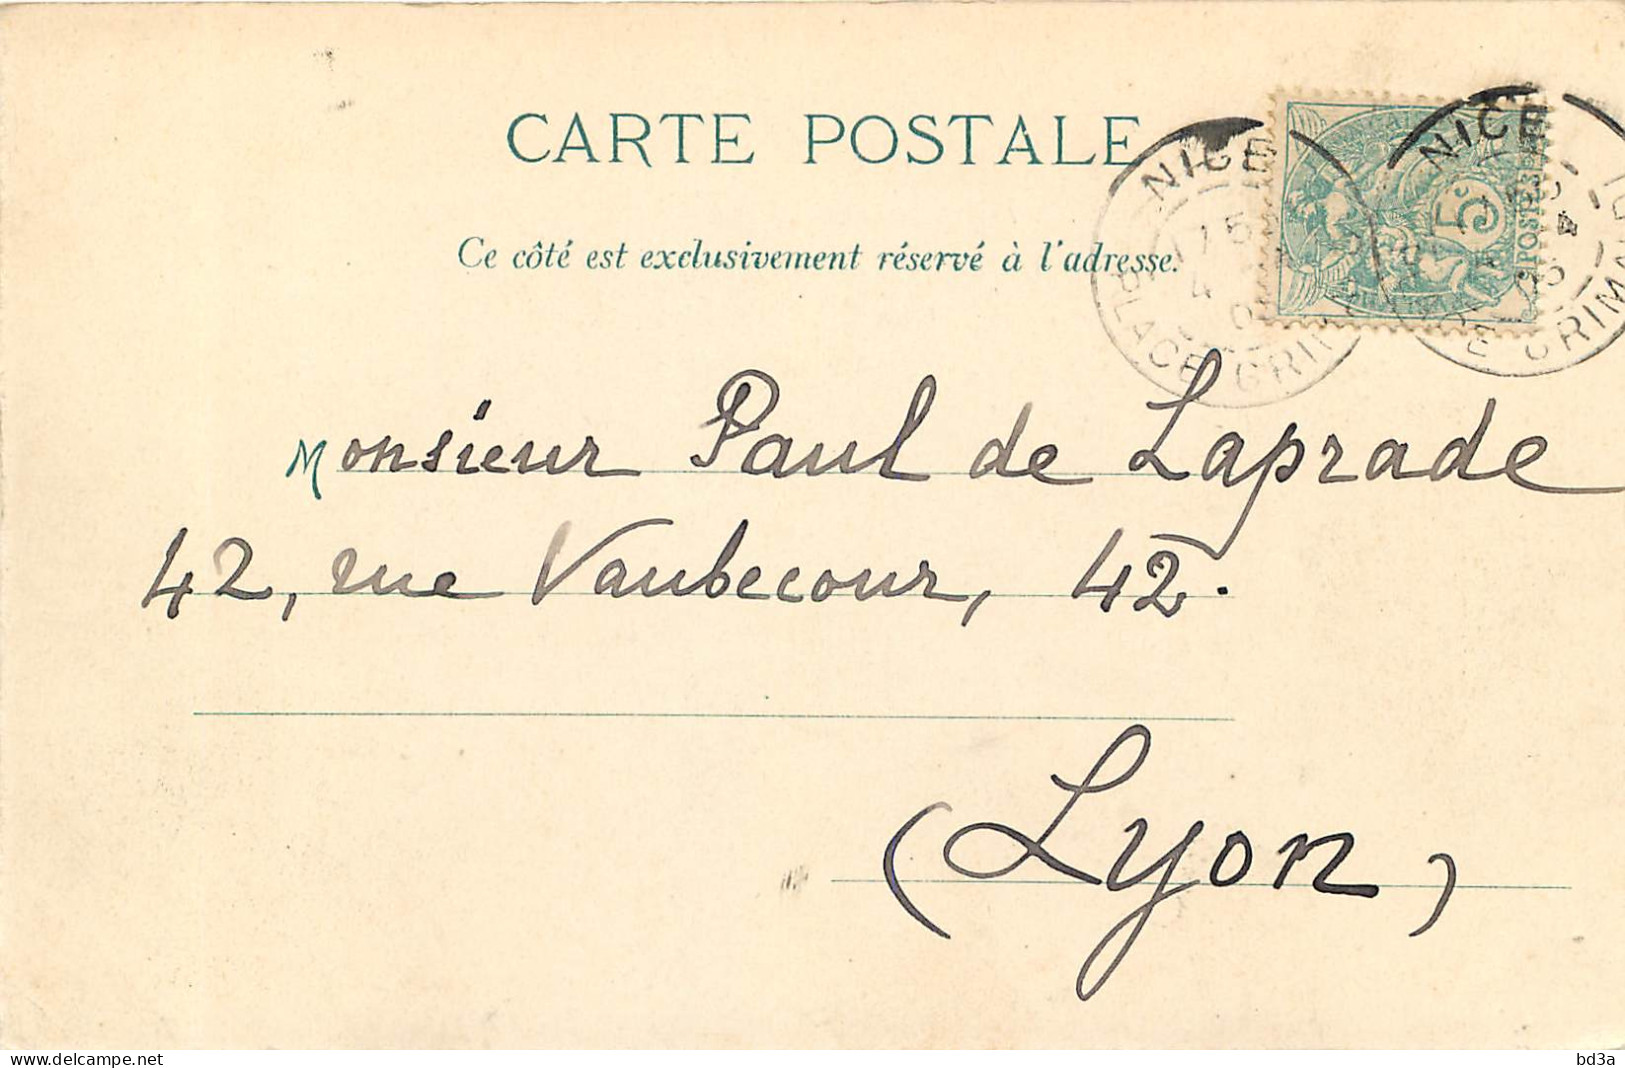 CARTE POSTALE
Ce côté est exclusivement réservé à l'adresse.
NICE
PLACE GRIM
NICE
GRIMA
5
POSTES
Monsieur Paul de Laprade
42, rue Vaubecour, 42.
(Lyon)
delcampe.net
bd3a